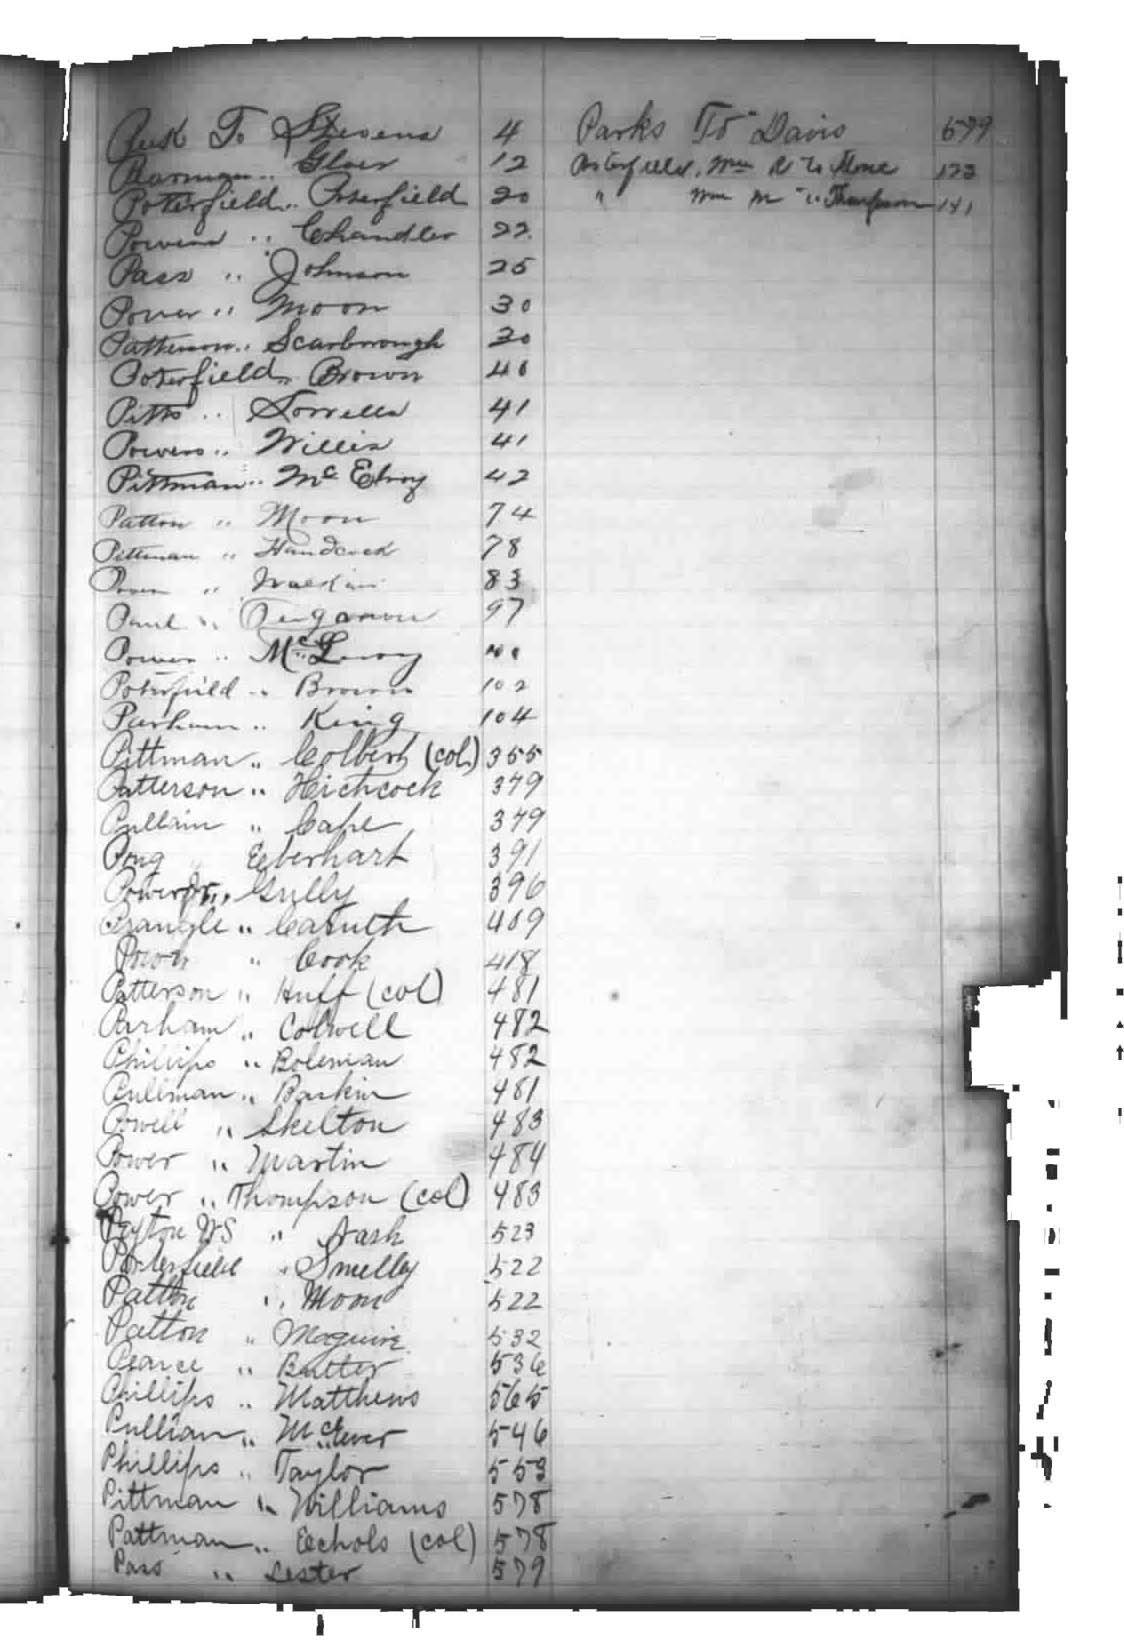 To Stevens 4
12
Poterfield .. Porterfield 20
Powers .. Chandler 22
Pass .. Johnson 25
Power .. Moon 30
Patterson .. Scarbrough 30
Poterfield .. Brown 40
Pitts .. Sorrells 41
Powers .. Willis 41
Pittman .. McElroy 42
Patton .. Moon 74
Pittman .. Handcock 78
83
Paul .. 97
Power ..
Poterfield .. Brown 102
Parham .. King 104
Pittman .. Colbert (col) 355
Patterson .. Hichcock 379
Pullain .. Cape 379
Eberhart 391
Power Jr .. Gully 396
Prangle .. Caruth 409
.. Cook 418
Patterson .. Huff (col) 481
Parham .. Colwell 482
Phillips .. Boleman 482
Pullman .. Baskin 481
Powell .. Skelton 483
Power .. Martin 484
Power .. Thompson (col) 483
Peyton WS .. Nash 523
Porterfield .. Smelley 522
Patton .. Moon 522
Patton .. Maguire 532
Pearce .. Butler 536
Phillips .. Matthews 565
Pullian .. McEver 546
Phillips .. Taylor 553
Pittman .. Williams 578
Pattman .. Echols (col) 578
Pass .. Lester 579
Parks To Davis 599
Porterfield, Wm R To 123
" Wm M " .. Thompson 141